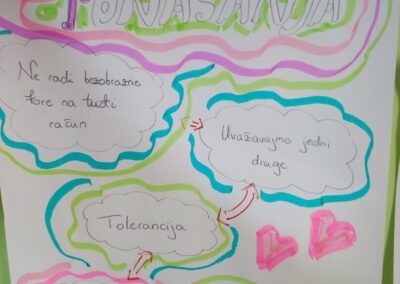 PONAŠANJA
Ne radi bezobrazne
fore na tuđi
račun
Uvažavajmo jedni
druge
Tolerancija